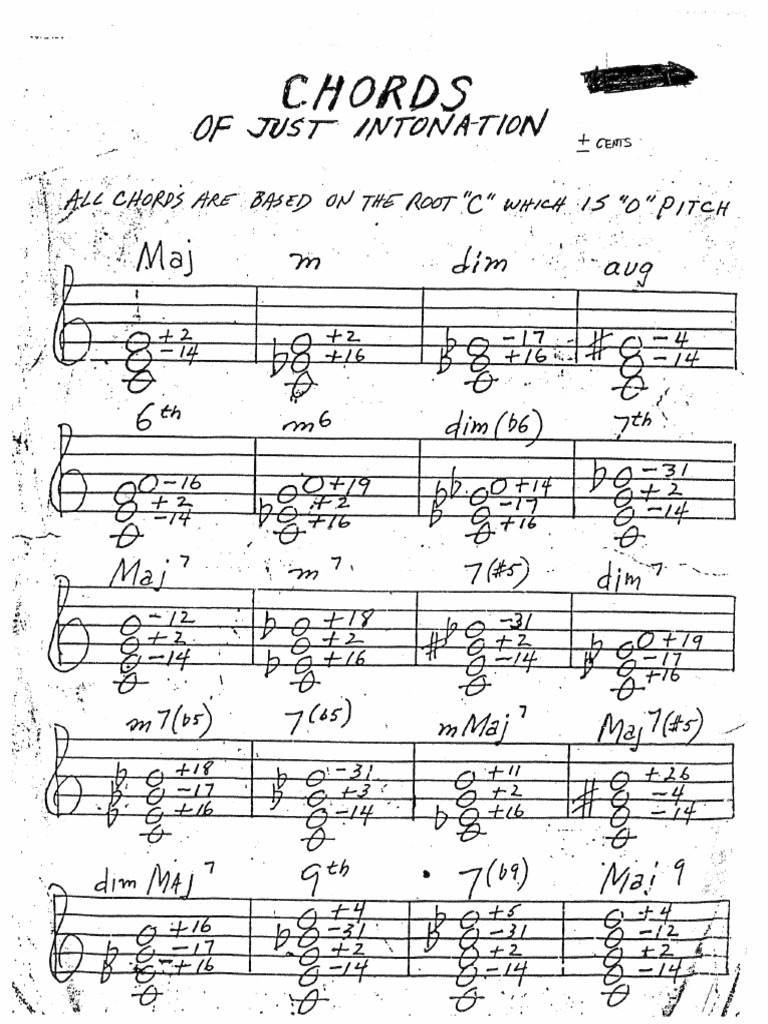 CHORDS
OF JUST INTONATION
± CENTS
ALL CHORDS ARE BASED ON THE ROOT "C" WHICH IS "0" PITCH
Maj m dim aug
+2 +2 -17 -4
-14 +16 +16 -14
6th m6 dim(b6) 7th
-16 +19 +14 -31
+2 +2 -17 +2
-14 +16 +16 -14
Maj7 m7 7(#5) dim7
-12 +18 -31 +19
+2 +2 +2 -17
-14 +16 -14 +16
m7(b5) 7(b5) mMaj7 Maj7(#5)
+18 -31 +11 +26
-17 +3 +2 -4
+16 -14 +16 -14
dim MAJ7 9th 7(b9) Maj9
+4 +5 +4
+16 -31 -31 -12
-17 +2 +2 +2
+16 -14 -14 -14